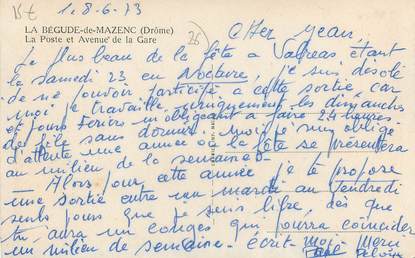 1.8-6-73
LA BÉGUDE-de-MAZENC (Drôme)
La Poste et Avenue de la Gare
26
Cher Jean,
Le plus beau de la fête a Valréas étant
le samedi 23 en Nocturne, je suis désolé
de ne pouvoir participé a cette sortie, car
moi je travaille, uniquement les dimanches
et jours Fériers m'obligeant a faire 24 heures
de file sans dormir. moi je suis obligé
d'attente une année ou la fête se présentera
au milieu de la semaine.
– Alors pour cette année je te propose
une sortie entre un mardi au Vendredi
seuls jours que je suis libre, dès que
tu aura un congés qui pourra coincider
un milieu de semaine. écrit moi Merci